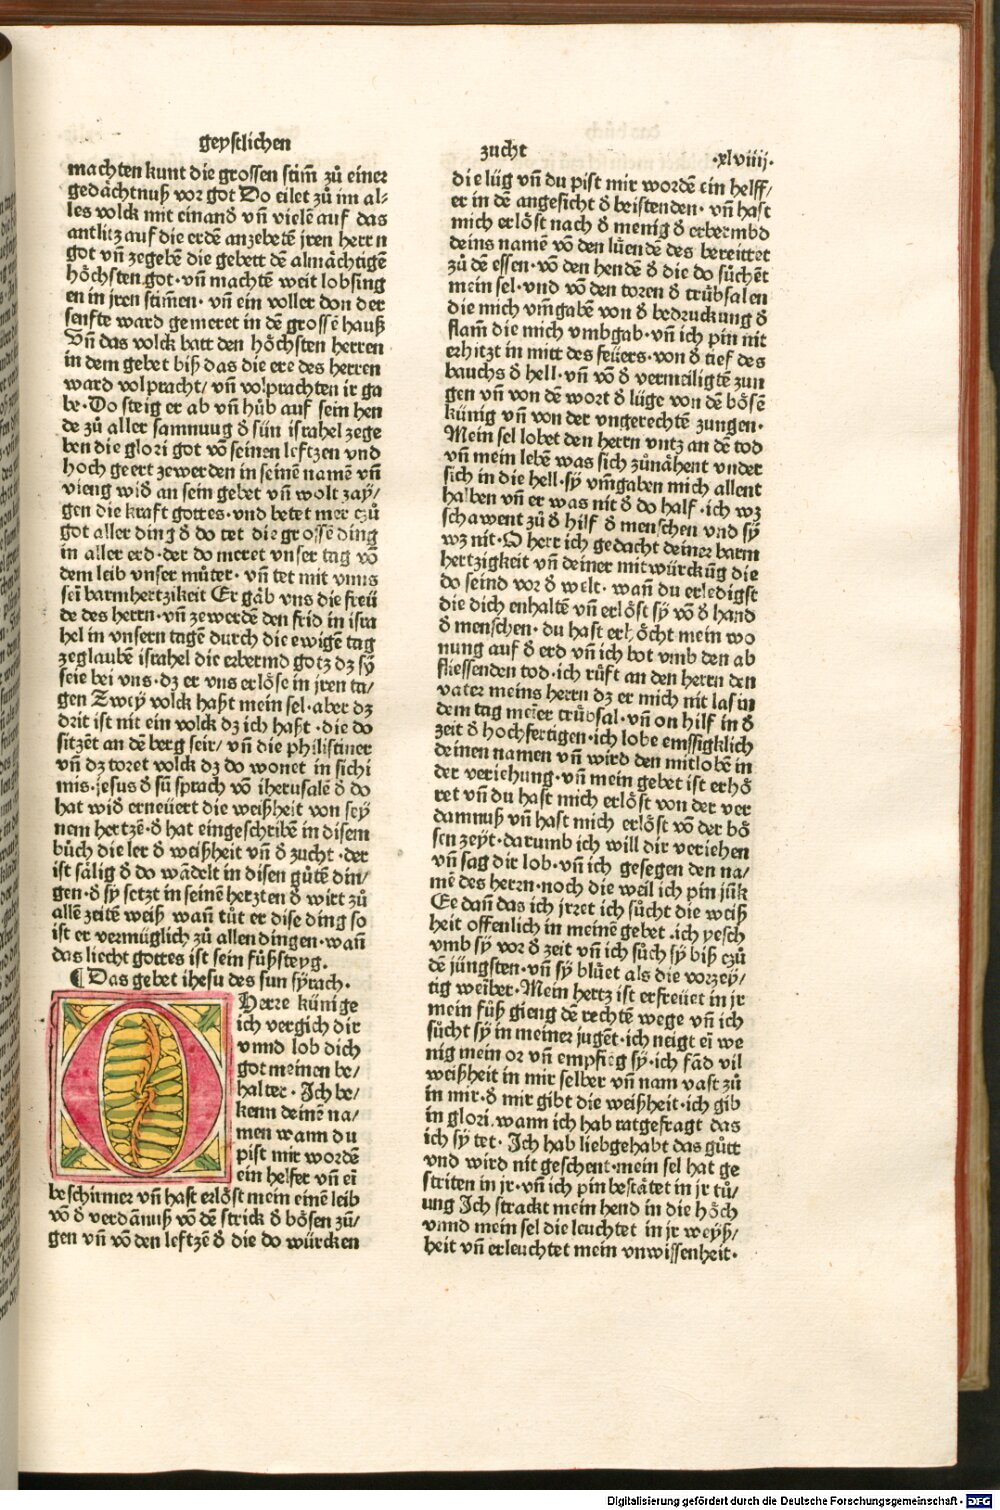 geystlichen
machten kunt die grossen stim̄ zů einer
gedächtnuß vor got Do eilet zů im al-
les volck mit einand̄ vn̄ vielē auf das
antlitz auf die erdē anzebetē jren herrn
got vn̄ zegebē die gebett dē almächtigē
höchsten got· vn̄ machtē weit lobsing
en in jren stim̄en· vn̄ ein voller don der
senfte ward gemeret in dē grossē hauß
Vn̄ das volck batt den höchsten herren
in dem gebet biß das die ere des herren
ward volpracht/ vn̄ volprachten ir ga
be· Do steig er ab vn̄ hůb auf sein hen
de zů aller samnung d̄ sün israhel zege
ben die glori got vō seinen leftzen vnd
hoch geert zewerden in seinē namē vn̄
vieng wid̄ an sein gebet vn̄ wolt zaÿ/
gen die kraft gottes· vnd betet mer czů
got aller ding d̄ do tet die grossē ding
in aller erd· der do meret vnser tag vō
dem leib vnser můter· vn̄ tet mit vnns
sei barmhertzikeit Er gäb vns die freü
de des herrn· vn̄ zewerdē den frid in isra
hel in vnsern tagē durch die ewigē tag
zeglaubē israhel die erbermd gotz dz sÿ
seie bei vns· dz er vns erlöse in jren ta/
gen Zweÿ volck haßt mein sel· aber dz
drit ist nit ein volck dz ich haßt· die do
sitzēt an dē berg seir/ vn̄ die philistiner
vn̄ dz toret volck dz do wonet in sichi
mis· jesus d̄ sun̄ sprach vō iherusalē d̄ do
hat wid̄ erneüert die weißheit von seÿ
nem hertzē· d̄ hat eingeschribē in disem
bůch die ler d̄ weißheit vn̄ d̄ zucht· der
ist sälig d̄ do wādelt in disen gůtē din/
gen· d̄ sÿ setzt in seinē hertzten d̄ wirt zů
allē zeitē weiß wan̄ tůt er dise ding so
ist er vermüglich zů allen dingen· wan̄
das liecht gottes ist sein fůßsteyg.
¶ Das gebet ihesu des sun sÿrach·
O Herre künige
ich vergich dir
vnnd lob dich
got meinen be/
halter· Ich be/
kenn deinē na/
men wann du
pist mir wordē
ein helfer vn̄ ei
beschirmer vn̄ hast erlöst mein einē leib
vō d̄ verdānuß vō dē strick d̄ bösen zū/
gen vn̄ vō den leftzē d̄ die do würcken
zucht
·xlviiij·
die lüg vn̄ du pist mir wordē ein helff/
er in dē angesicht d̄ beistenden· vn̄ hast
mich erlöst nach d̄ menig d̄ erbermbd
deins namē vō den lüendē des bereittet
zů dē essen· vō den hendē d̄ die do sůchēt
mein sel· vnd vō den toren d̄ trübsalen
die mich vm̄gabē von d̄ bedruckung d̄
flam̄ die mich vmbgab· vn̄ ich pin nit
erhitzt in mitt des feüers· von d̄ tief des
bauchs d̄ hell· vn̄ vō d̄ vermeiligtē zun
gen vn̄ von dē wort d̄ lüge von dē bösē
künig vn̄ von der vngerechtē zungen·
Mein sel lobet den herrn vntz an dē tod
vn̄ mein lebē was sich zůnähent vnder
sich in die hell· sÿ vm̄gaben mich allent
halben vn̄ er was nit d̄ do half· ich wz
schawent zů d̄ hilf d̄ menschen vnd sÿ
wz nit· O herr ich gedacht deiner barm
hertzigkeit vn̄ deiner mitwürckūg die
do seind vor d̄ welt· wan̄ du erledigst
die dich enhaltē vn̄ erlöst sÿ vō d̄ hand
d̄ menschen· du hast erhöcht mein wo
nung auf d̄ erd vn̄ ich bot vmb den ab
fliessenden tod· ich rüft an den herrn den
vater meins herrn dz er mich nit las in
dem tag meīer trübsal· vn̄ on hilf in d̄
zeit d̄ hochfertigen· ich lobe emssigklich
deinen namen vn̄ wird den mitlobē in
der veriehung· vn̄ mein gebet ist erhö
ret vn̄ du hast mich erlöst von der ver
damnuß vn̄ hast mich erlöst vō der bö
sen zeyt· darumb ich will dir veriehen
vn̄ sag dir lob· vn̄ ich gesegen den na/
mē des herrn· noch die weil ich pin jūk
Ee dan̄ das ich jrret ich sůcht die weiß
heit offenlich in meinē gebet· ich yesch
vmb sÿ vor d̄ zeit vn̄ ich sůch sÿ biß czů
dē jüngsten· vn̄ sÿ blüet als die vorzeÿ/
tig weīber· Mein hertz ist erfreüet in jr
mein fůß gieng dē rechtē wege vn̄ ich
sůcht sÿ in meiner jugēt· ich neigt ei we
nig mein or vn̄ empfieg sÿ· ich fād vil
weißheit in mir selber vn̄ nam vast zů
in mir· d̄ mir gibt die weißheit· ich gib
in glori· wann ich hab ratgefragt das
ich sÿ tet· Ich hab liebgehabt das gůtt
vnd wird nit geschent· mein sel hat ge
striten in jr· vn̄ ich pin bestätet in jr tů/
ung Ich strackt mein hend in die höch
vnnd mein sel die leuchtet in jr weyß/
heit vn̄ erleuchtet mein vnwissenheit·
Digitalisierung gefördert durch die Deutsche Forschungsgemeinschaft - DFG